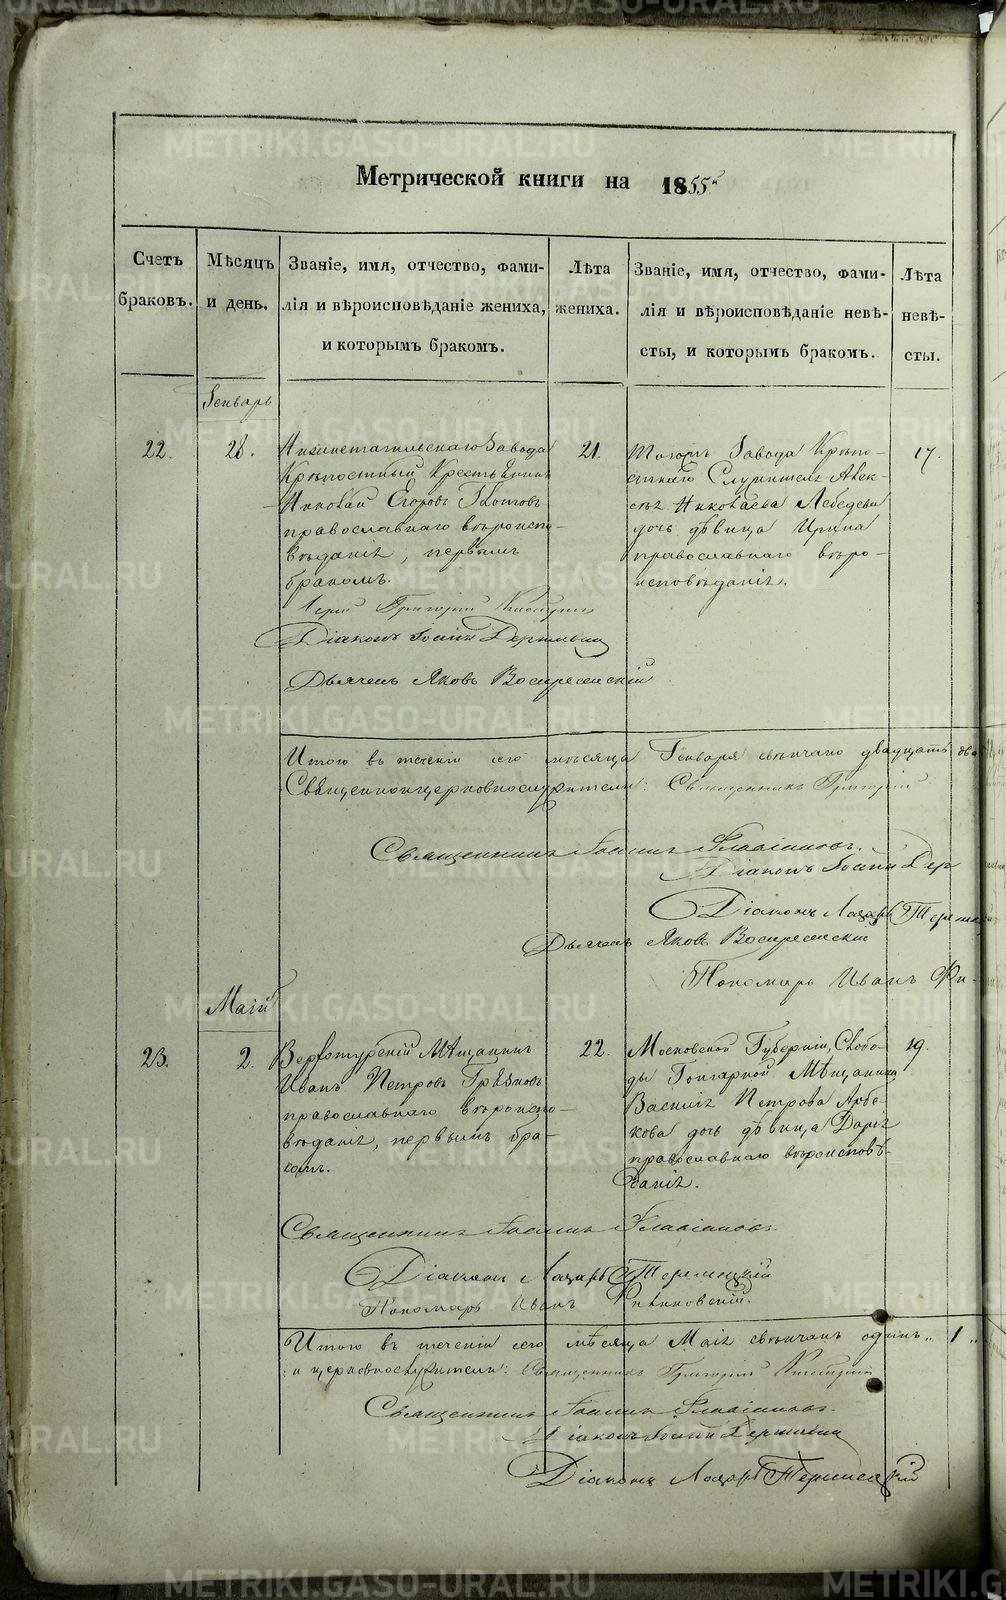 METRIKI.GASO-URAL.RU
Метрической книги на 1855й
Счетъ браковъ.
Мѣсяцъ и день.
Званіе, имя, отчество, фами-
лія и вѣроисповѣданіе жениха,
и которымъ бракомъ.
Лѣта жениха.
Званіе, имя, отчество, фами-
лія и вѣроисповѣданіе невѣ-
сты, и которымъ бракомъ.
Лѣта невѣ-
сты.
Генварь
22.
28.
Нижнетагильскаго Завода
Крѣпостный Крестьянинъ
Николай Егоровъ
православнаго вѣроиспо-
вѣданія, первымъ
бракомъ.
21.
Тогожъ Завода Крѣпо-
стнаго Служителя Алек-
сѣя Николаева Лебедева
дочь дѣвица Ирина
православнаго вѣро-
исповѣданія.
17.
Іерей Григорій
Діаконъ Іоаннъ
Дьячекъ Яковъ Воскресенскій
Итого въ теченіи сего мѣсяца Генваря свѣнчано двадцать два
Священноицерковнослужители: Священникъ Григорій
Священникъ Іоаннъ Флавіановъ.
Діаконъ Іоаннъ Дер
Діаконъ Лазарь
Дьячекъ Яковъ Воскресенскій
Пономарь Иванъ
Маій
23.
2.
Верхотурскій Мѣщанинъ
Иванъ Петровъ
православнаго вѣроиспо-
вѣданія, первымъ бра-
комъ.
22.
Московской Губерніи, Слобо-
ды Гончарной Мѣщанина
Василія Петрова
дочь дѣвица Дарія
православнаго вѣроисповѣ-
данія.
19.
Священникъ Іоаннъ Флавіановъ
Діаконъ Лазарь
Пономарь Иванъ
Итого въ теченіи сего мѣсяца Маія свѣнчанъ одинъ „ 1 „
и церковнослужители: Священникъ Григорій
Священникъ Іоаннъ Флавіановъ.
Діаконъ Іоаннъ
Діаконъ Лазарь